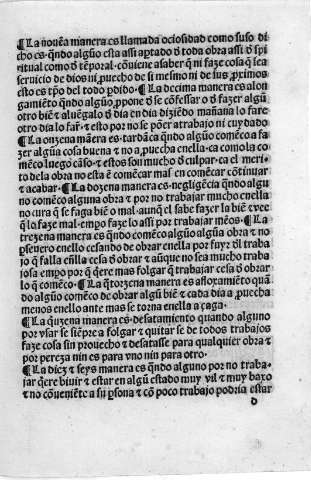 ¶La nouena manera es llamada ociosidad como suso di
cho es qñdo algũo esta assi apartado đ toda obra assi đ spi
ritual como đ tẽporal. cõuiene asaber q̃ ni faze cosa q̃ sea
seruicio de dios ni ꝓuecho de si mesmo ni de sus ꝓximos
esto es tpõ del todo ꝑdido. ¶La decima manera es alon
gamiẽto qñdo algũo ꝓpone đ se cõfessar o đ fazer algũ
otro biẽ ⁊ aluẽgalo đ dia en dia diziẽdo mañana lo fare
otro dia lo fare ⁊ esto por no se põer a trabajo ni cuydado
¶La onzena manera es tardãça qñdo algũo comẽço a fa
zer algũa cosa buena ⁊ no aꝓuecha enella. ca como la co
mẽço luego cãso. ⁊ estos son mucho đ culpar. ca el meri-
to dela obra no esta ẽ comẽçar mas en comẽçar cõtinuar
⁊ acabar. ¶La dozena manera es negligẽcia qñdo algu
no comẽço alguna obra ⁊ por no trabajar mucho enella
no cura q̃ se faga biẽ o mal. aunq̃ el sabe fazer la biẽ ⁊ vee
q̃ la faze mal. empo faze lo assi por trabajar mẽos. ¶La
trezena manera es qñdo comẽço algũo algũa obra ⁊ no
ꝑseuero enello cesando de obrar enella por fuyr đl traba
jo q̃ falla eñlla cesa đ obrar ⁊ aũque no sea mucho traba
josa empo por q̃ q̃ere mas folgar q̃ trabajar cesa đ obrar
lo q̃ comẽço. ¶La q̃torzena manera es afloxamiẽto quã
do algũo comẽço de obrar algũ biẽ ⁊ cada dia aꝓuecha
menos enello ante mas se torna enello a çaga.
¶La quĩzena manera es. desatamiento quando alguno
por vsar se siẽpre a folgar ⁊ quitar se de todos trabajos
faze cosa sin prouecho ⁊ desatasse para qualquier obra ⁊
por pereza nin es para vno nin para otro.
¶La diez ⁊ seys manera es qñdo alguno por no traba-
jar q̃ere biuir ⁊ estar en algũ estado muy vil ⁊ muy baxo
⁊ no cõueniẽte a su ꝑsona ⁊ cõ poco trabajo podria estar
d